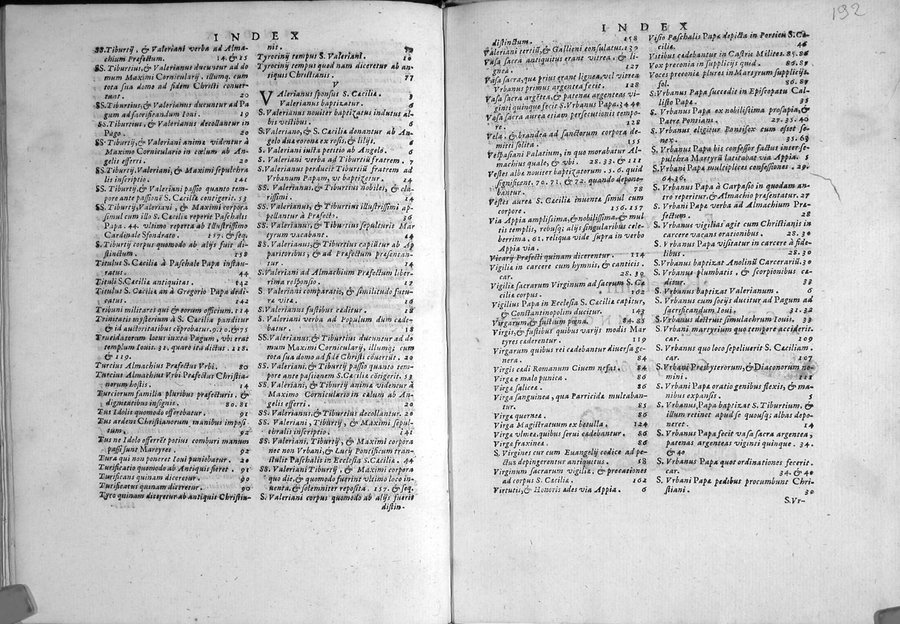 INDEX
SS. Tiburtij, & Valeriani verba ad Alma-
chium Præfectum. 14. & 15
SS. Tiburtius, & Valerianus ducuntur ad do
mum Maximi Cornicularij, illumq. cum
tota sua domo ad fidem Christi conuer-
tunt. 20
SS. Tiburtius, & Valerianus ducuntur ad Pa
gum ad sacrificandum Ioui. 19
SS. Tiburtius, & Valerianus decollantur in
Pago. 20
SS. Tiburtij, & Valeriani animæ videntur à
Maximo Corniculario in cœlum ab An
gelis efferri. 20
SS. Tiburtij, Valeriani, & Maximi sepulchra
lis inscriptio. 141
SS. Tiburtij, & Valeriani passio quanto tem-
pore ante passionē S. Cæcilia contigerit. 53
SS. Tiburtij, Valeriani, & Maximi corpora
simul cum illo S. Cæciliæ reperit Paschalis
Papa. 44. vltimo repetita ab Illustrissimo
Cardinale Sfondrato. 157. & 60
S. Tiburtij corpus quomodo ab alijs fuit di-
stinctum. 158
Titulus S. Cæciliæ à Paschale Papa instau-
ratus. 44
Tituli S. Cæciliæ antiquitas. 142
Titulus S. Cæciliæ an à Gregorio Papa dedi-
catus. 142
Tribuni militares qui & eorum officium. 114
Trinitatis mysterium à S. Cæcilia panditur
& id auctoritatibus cōprobatur. 9. 10. & 75
Trucidatorum locus iuxta Pagum, vbi erat
templum Iouis. 31. quare ita dictus. 118.
& 119.
Turcius Almachius Præfectus Vrbi. 80
Turcius Almachius Vrbi Præfectus Christia-
norum hostis. 14
Turciorum familia pluribus præfecturis, &
dignitatibus insignis. 80. 81
Tus Idolis quomodo offerebatur. 91
Tus ardens Christianorum manibus imposi
tum. 92
Tus ne Idolo offerrēt potius comburi manum
passi sunt Martyres. 92
Tura qui non poneret Ioui puniebatur. 20
Turificatio quomodo ab Antiquis fieret. 91
Turificans quinam diceretur. 90
Turificatus quinam diceretur. 90
Tyro quinam diceretur ab antiquis Christia-
nis.
Tyrocinij tempus S. Valeriani. 10
Tyrocinij tempus quod nam diceretur ab an
tiquis Christianis. 77
V
Valerianus sponsus S. Cæciliæ. 3
Valerianus baptizatur. 6
S. Valerianus nouiter baptizatus indutus al-
bis vestibus. 6
S. Valeriano, & S. Cæciliæ donantur ab An-
gelo duæ coronæ ex rosis, & lilijs. 6
S. Valeriani iusta petitio ab Angelo. 6
S. Valeriani verba ad Tiburtiū fratrem. 7
S. Valerianus perducit Tiburtiū fratrem ad
Vrbanum Papam, vt baptizetur. 14
SS. Valerianus, & Tiburtius nobiles, & cla-
rissimi. 14
SS. Valerianus, & Tiburtius illustrissimi ap-
pellantur à Præfecto. 16
SS. Valerianus, & Tiburtius sepulturis Mar
tyrum vacabant. 14
SS. Valerianus, & Tiburtius capiūtur ab Ap
paritoribus, & ad Præfectum præsentan-
tur. 14
S. Valeriani ad Almachium Præfectum liber-
rima responsio. 17
S. Valeriani comparatio, & similitudo futu-
ræ vitæ. 16
S. Valerianus fustibus cæditur. 18
S. Valeriani verba ad Populum dum cæde-
batur. 18
SS. Valerianus, & Tiburtius ducuntur ad do
mum Maximi Cornicularij, illumq. cum
tota sua domo ad fidē Christi cōuertūt. 20
SS. Valeriani, & Tiburtij passio quanto tem-
pore ante passionem S. Cæciliæ cōtigerit. 53
SS. Valeriani, & Tiburtij animæ videntur à
Maximo Corniculario in cœlum ab An-
gelis efferri. 20
SS. Valerianus, & Tiburtius decollantur. 20
SS. Valeriani, Tiburtij, & Maximi sepul-
chralis inscriptio. 141
SS. Valeriani, Tiburtij, & Maximi corpora
nec non Vrbani, & Lucij Pontificum tran-
stulit Paschalis in Ecclesia S. Cæciliæ. 44
SS. Valeriani Tiburtij, & Maximi corpora
quo die, & quomodo fuerint vltimo loco in-
uenta, & solemniter reposita. 157. & seq.
S. Valeriani corpus quomodo ab alijs fuerit
distin-
192
INDEX
distinctum. 158
Valeriani tertiū, & Gallieni consulatus. 130
Vasa sacra antiquitus erant vitrea, & li-
gnea. 127
Vasa sacra, quæ prius erant lignea, vel vitrea
Vrbanus primus argentea fecit. 128
Vasa sacra argētea, & patenas argenteas vi-
ginti quinque fecit S. Vrbanus Papa. 34. 40
Vasa sacra aurea etiam persecutionis tempo-
re. 128
Vela, & brandea ad sanctorum corpora de-
mitti solita. 155
Vespasiani Palatium, in quo morabatur Al-
machius quale, & vbi. 28. 33. & 111
Vestes albæ nouiter baptizatorum. 5. 6. quid
significent. 70. 71. & 72. quando depone-
bantur. 78
Vestes aureæ S. Cæciliæ inuentæ simul cum
corpore. 156. 157
Via Appia amplissima, & nobilissima, & mul
tis templis, rebusq; alijs singularibus cele-
berrima. 61. reliqua vide supra in verbo
Appia via.
Vicarij Præfecti quinam dicerentur. 114
Vigiliæ in carcere cum hymnis, & canticis.
28. 30
Vigiliæ sacrarum Virginum ad sacrum S. Cæ
ciliæ corpus. 102
Vigilius Papa in Ecclesia S. Cæciliæ capitur,
& Constantinopolim ducitur. 143
Virgarum, & fustium pœna. 84. 85
Virgis, & fustibus quibus varijs modis Mar
tyres cæderentur. 119
Virgarum quibus rei cædebantur diuersa ge-
nera. 86
Virgis cædi Romanum Ciuem nefas. 84
Virgæ e malo punica. 86
Virgæ saliceæ. 86
Virga sanguinea, qua Parricidæ mulctaban-
tur. 85
Virgæ querneæ. 86
Virgæ Magistratuum ex betulla. 124
Virgæ vlmeæ, quibus serui cædebantur. 86
Virgæ fraxineæ. 86
S. Virgines cur cum Euangelij codice ad pe-
ctus depingerentur antiquitus. 58
Virginum sacrarum vigiliæ, & precationes
ad corpus S. Cæciliæ. 102
Virtutis, & Honoris ædes via Appia. 6
Visio Paschalis Papæ depicta in Porticu S. Cæ-
ciliæ. 46
Vitibus cædebantur in Castris Milites. 85. 86
Vox præconia in supplicijs quid. 86. 87
Voces præconiæ plures in Martyrum supplicijs
fol. 86. 87
S. Vrbanus Papa succedit in Episcopatu Cal-
listo Papæ. 35
S. Vrbanus Papa ex nobilissima prosapia, &
Patre Pontiano. 27. 35. 40
S. Vrbanus eligitur Pontifex cum esset se-
nex. 35. 68
S. Vrbanus Papa bis confessor factus inter se-
pulchra Martyrū latitabat via Appia. 5
S. Vrbani Papæ multiplices confessiones. 29.
64. 36
S. Vrbanus Papa à Carpasio in quodam an-
tro reperitur, & Almachio præsentatur. 27
S. Vrbani Papæ verba ad Almachium Præ-
fectum. 28
S. Vrbanus vigilias agit cum Christianis in
carcere vacans orationibus. 28. 30
S. Vrbanus Papa visitatur in carcere à fide-
libus. 28. 30
S. Vrbanus baptizat Anolinū Carcerariū. 30
S. Vrbanus plumbatis, & scorpionibus cæ-
ditur. 38
S. Vrbanus baptizat Valerianum. 6
S. Vrbanus cum socijs ducitur ad Pagum ad
sacrificandum Ioui. 31. 32
S. Vrbanus destruit simulacrum Iouis. 39
S. Vrbani martyrium quo tempore acciderit.
car. 109
S. Vrbanus quo loco sepelierit S. Cæciliam.
car. 107
S. Vrbani Presbyterorum, & Diaconorum no-
mini. 112
S. Vrbani Papæ oratio genibus flexis, & ma-
nibus expansis. 5
S. Vrbanus Papa baptizat S. Tiburtium, &
illum retinet apud se quousq; albas depo-
neret. 14
S. Vrbanus Papa fecit vasa sacra argentea,
patenas argenteas viginti quinque. 34.
& 40
S. Vrbanus Papa quot ordinationes fecerit.
car. 34. & 40
S. Vrbani Papæ pedibus procumbunt Chri-
stiani. 30
S. Vr-